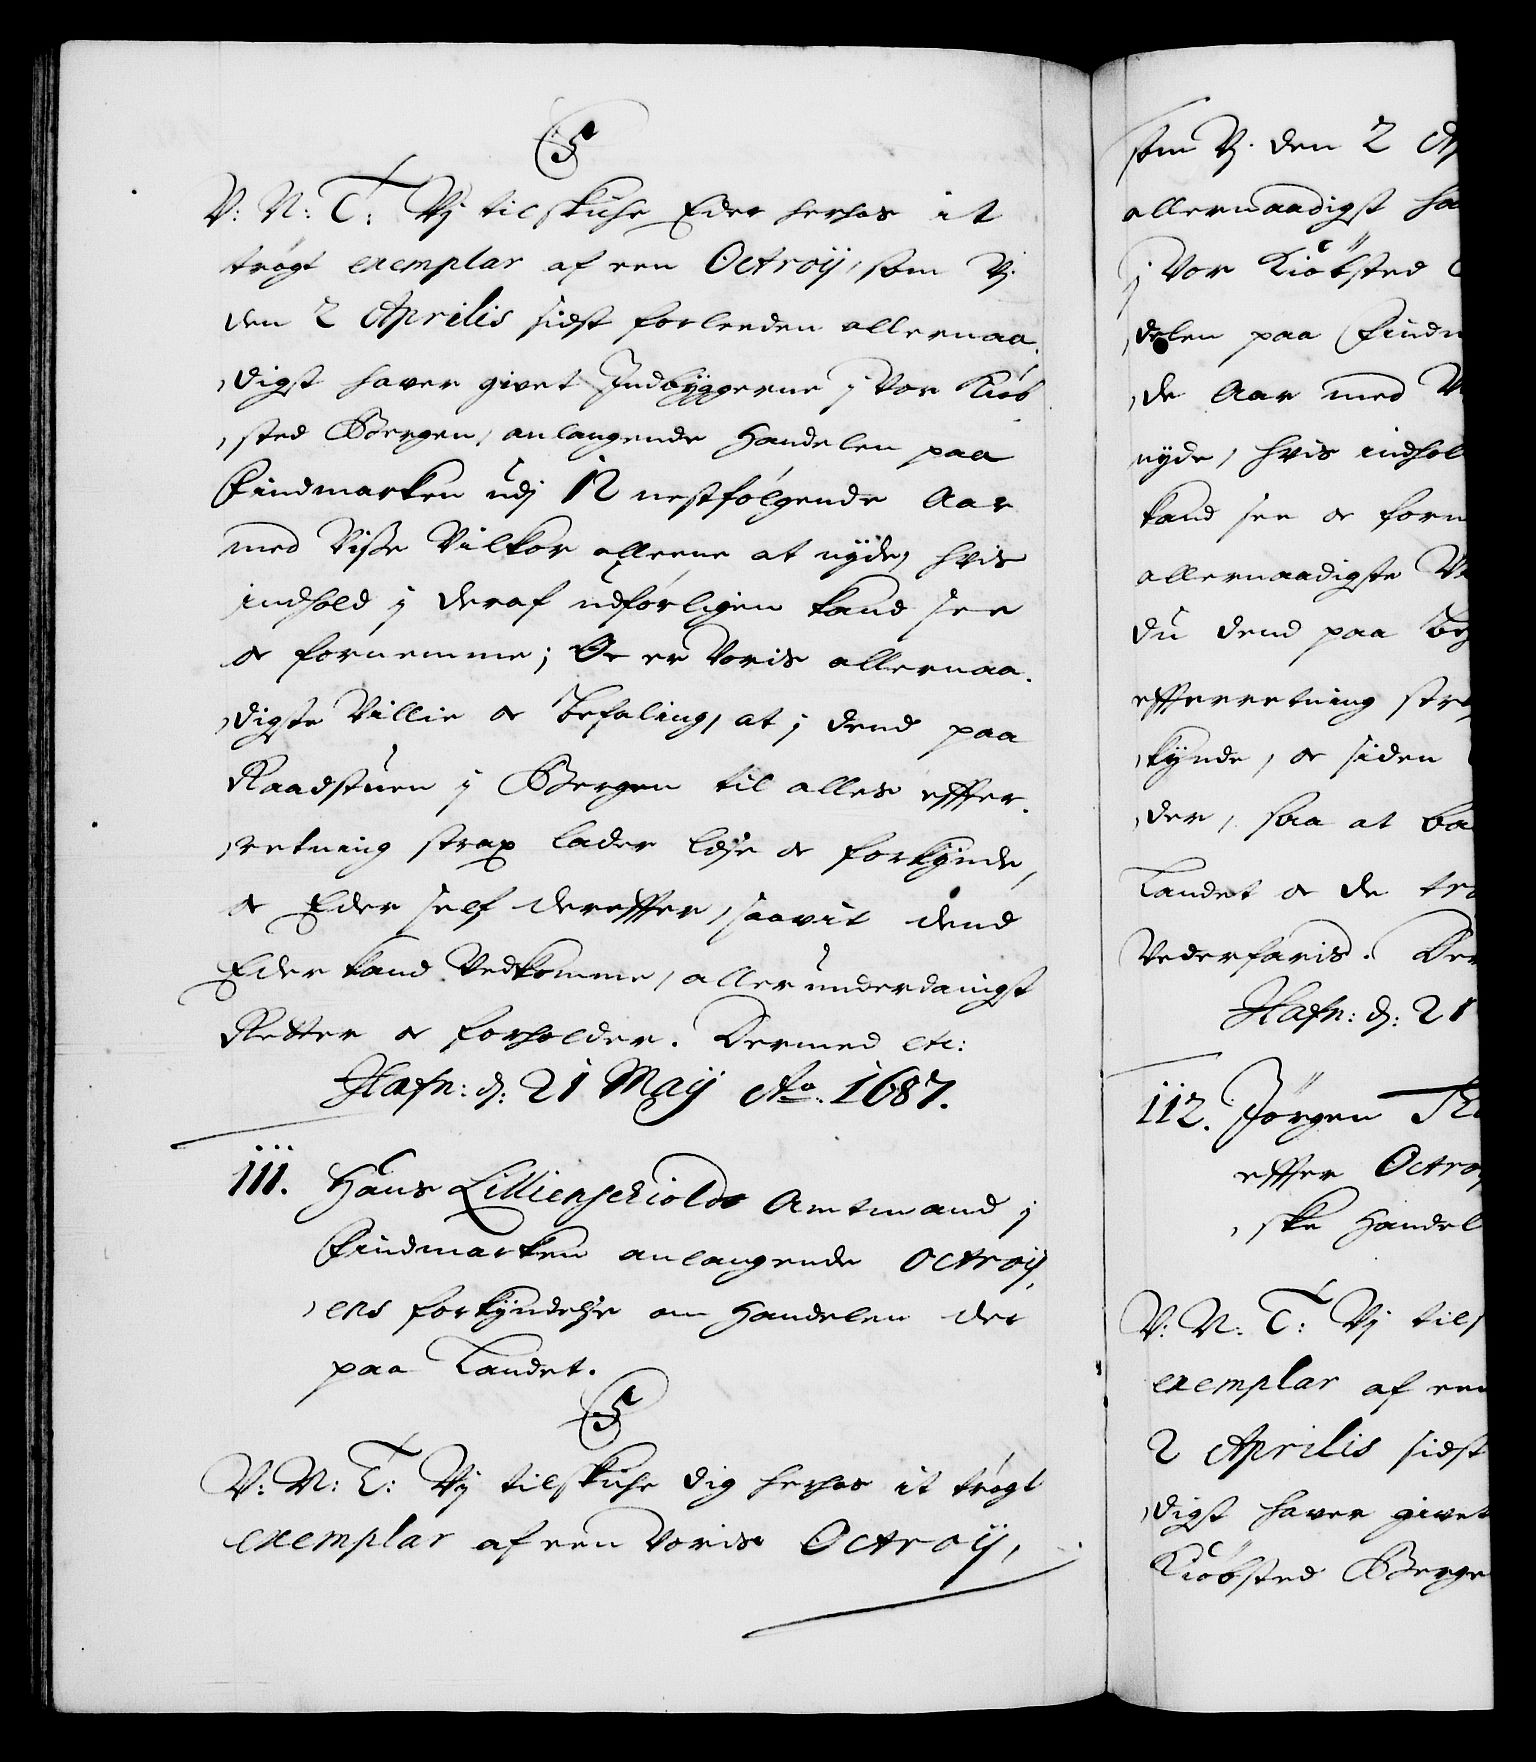 V: N: T: Vj tilskiche Eder herhos it
trögt exemplar af een Octroij, som Vj
den 2 Aprilis sidst forleeden allernaa-
digst haver givet Indbyggerne j Vor Kiöb
sted Bergen, anlangende Handelen paa
Findmarken udj 12 nestfølgende Aar
med Visse Vilkor alleene at nyde, hvis
indhold j deraf udførligen kand see
oc fornemme; Oc er Voris allernaa-
digste Villie oc Befaling, at j dend paa
Raadstuen j Bergen til alles effter-
retning strax lader læse oc forkynde,
oc Eder self dereffter, saavit dend
Eder kand Vedkomme, allerunderdanigst
Retter oc forholder. Dermed etc:
Hafn: d: 21 Maij Ao. 1687.
111. Hans Lillienschiold Amtmand j
Findmarken anlangende Octroij-
ens forkyndelse om Handelen der
paa Landet.
V: N: T: Vj tilskiche dig herhos it trögt
exemplar af een Voris Octroij,
som Vj. den 2 Ap
allernaadigst ha
j Vor Kiöbsted
delen paa Findm
de Aar med V
nyde, hvis indhol
kand see oc forn
allernaadigste V
du dend paa
effterretning stra
kynde, oc siden
der, saa at
Landet oc de
Vederfaris. Der
Hafn: d: 21
112. Jörgen
effter Octro
ske Handel
V: N: T: Vj tils
exemplar af een
2 Aprilis sidst
digst haver givet
Kiöbsted Berge